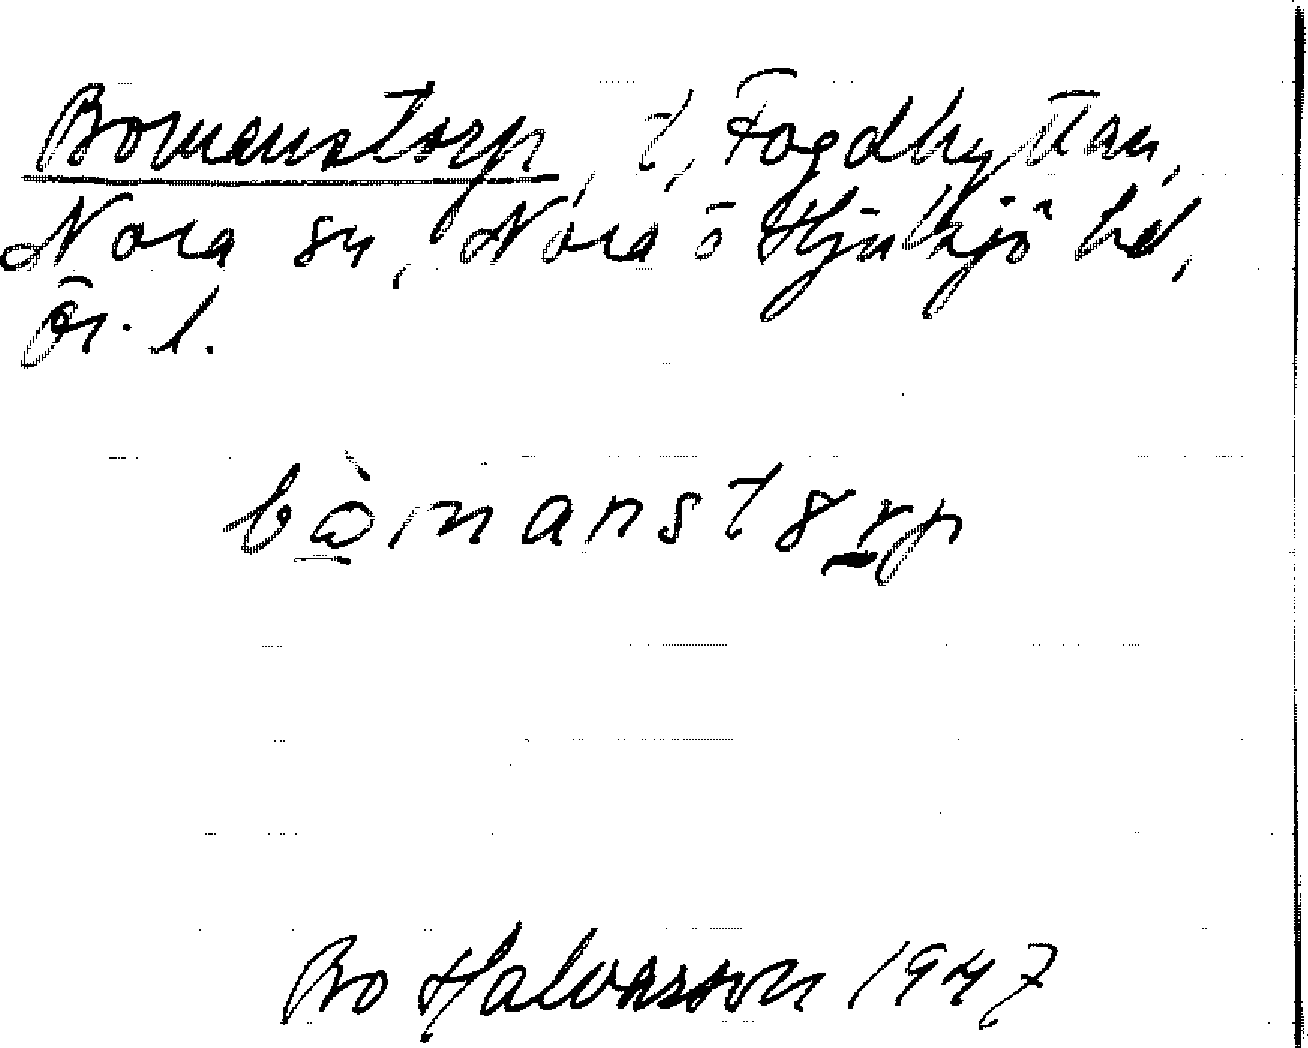 Bomanstorp, t, Fogdhyttan,
Nora sn, Nora o Hjulsjö hd,
Ör. l.
bòmanstorp
Bo Halvarsson 1947